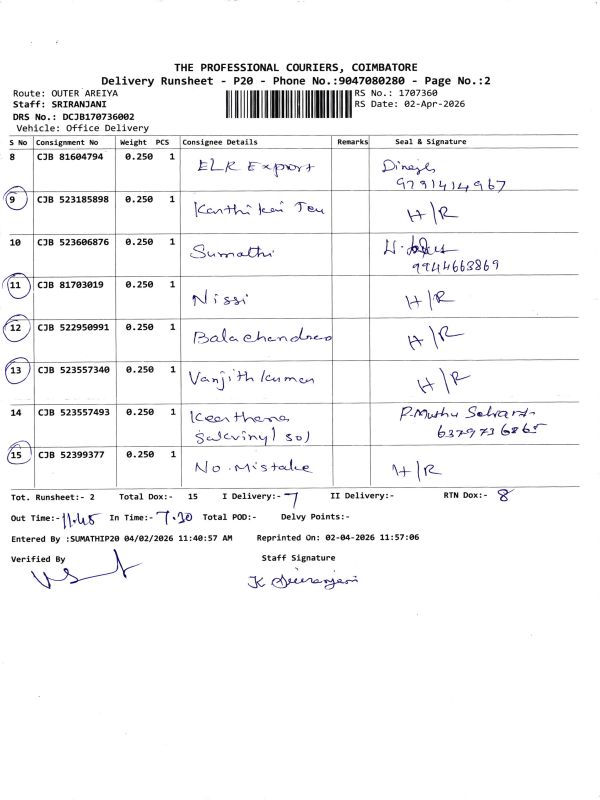 THE PROFESSIONAL COURIERS, COIMBATORE
Delivery Runsheet - P20 - Phone No.:9047080280 - Page No.:2
Route: OUTER AREIYA RS No.: 1707360
Staff: SRIRANJANI RS Date: 02-Apr-2026
DRS No.: DCJB170736002
Vehicle: Office Delivery
S No Consignment No Weight PCS Consignee Details Remarks Seal & Signature
8 CJB 81604794 0.250 1 ELK Export Dinesh
9791414967
9 CJB 523185898 0.250 1 Karthikai H/R
10 CJB 523606876 0.250 1 Sumathi
9944663869
11 CJB 81703019 0.250 1 Nissi H/R
12 CJB 522950991 0.250 1 Balachandran H/R
13 CJB 523557340 0.250 1 Vanjithkumar H/R
14 CJB 523557493 0.250 1 Keerthana P.Muthu
6379736865
15 CJB 52399377 0.250 1 No. Mistake H/R
Tot. Runsheet:- 2 Total Dox:- 15 I Delivery:- 7 II Delivery:- RTN Dox:- 8
Out Time:- 11.45 In Time:- 7.30 Total POD:- Delvy Points:-
Entered By :SUMATHIP20 04/02/2026 11:40:57 AM Reprinted On: 02-04-2026 11:57:06
Verified By Staff Signature